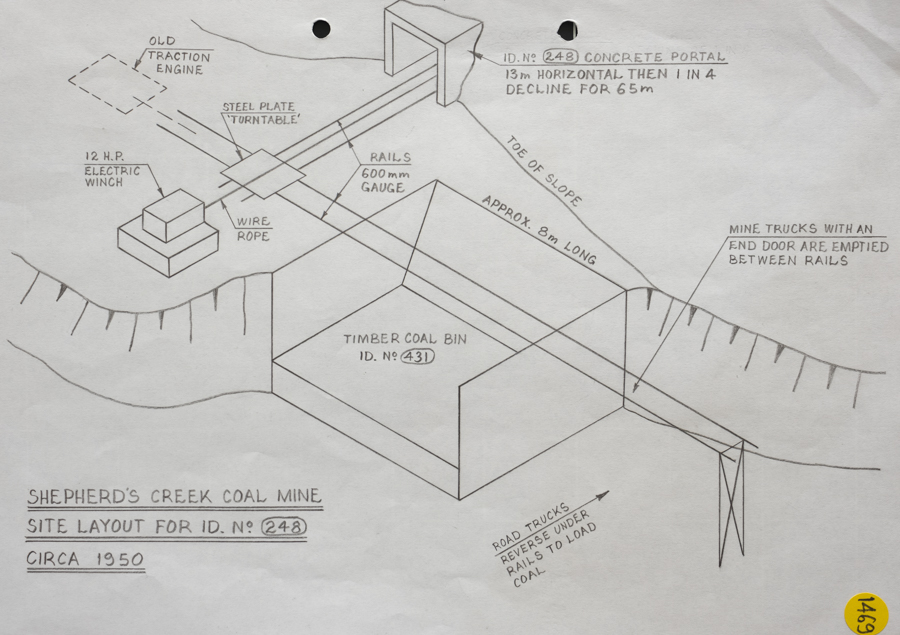 OLD
TRACTION
ENGINE
ID. Nº 248 CONCRETE PORTAL
13m HORIZONTAL THEN 1 IN 4
DECLINE FOR 65m
STEEL PLATE
'TURNTABLE'
12 H.P.
ELECTRIC
WINCH
RAILS
600mm
GAUGE
TOE OF SLOPE
WIRE
ROPE
APPROX. 8m LONG
MINE TRUCKS WITH AN
END DOOR ARE EMPTIED
BETWEEN RAILS
TIMBER COAL BIN
ID. Nº 431
SHEPHERD'S CREEK COAL MINE
SITE LAYOUT FOR ID. Nº 248
CIRCA 1950
ROAD TRUCKS
REVERSE UNDER
RAILS TO LOAD
COAL
1469